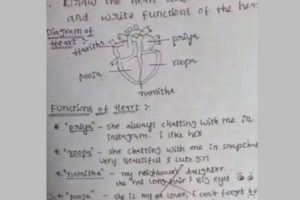 Draw the heart
and write functions of the hea
Diagram of
Heart :-
Haritha
priya
roopa
pooja
namitha
Functions of Heart :-
"priya" - she always chatting with me in
instagram. I like her
"roopa" - she chatting with me in snapchat
very beautiful & cute girl
"namitha" - my neighbour's daughter.
she has long hair & Big eyes
"pooja" - she is my ex lover, i can't forget